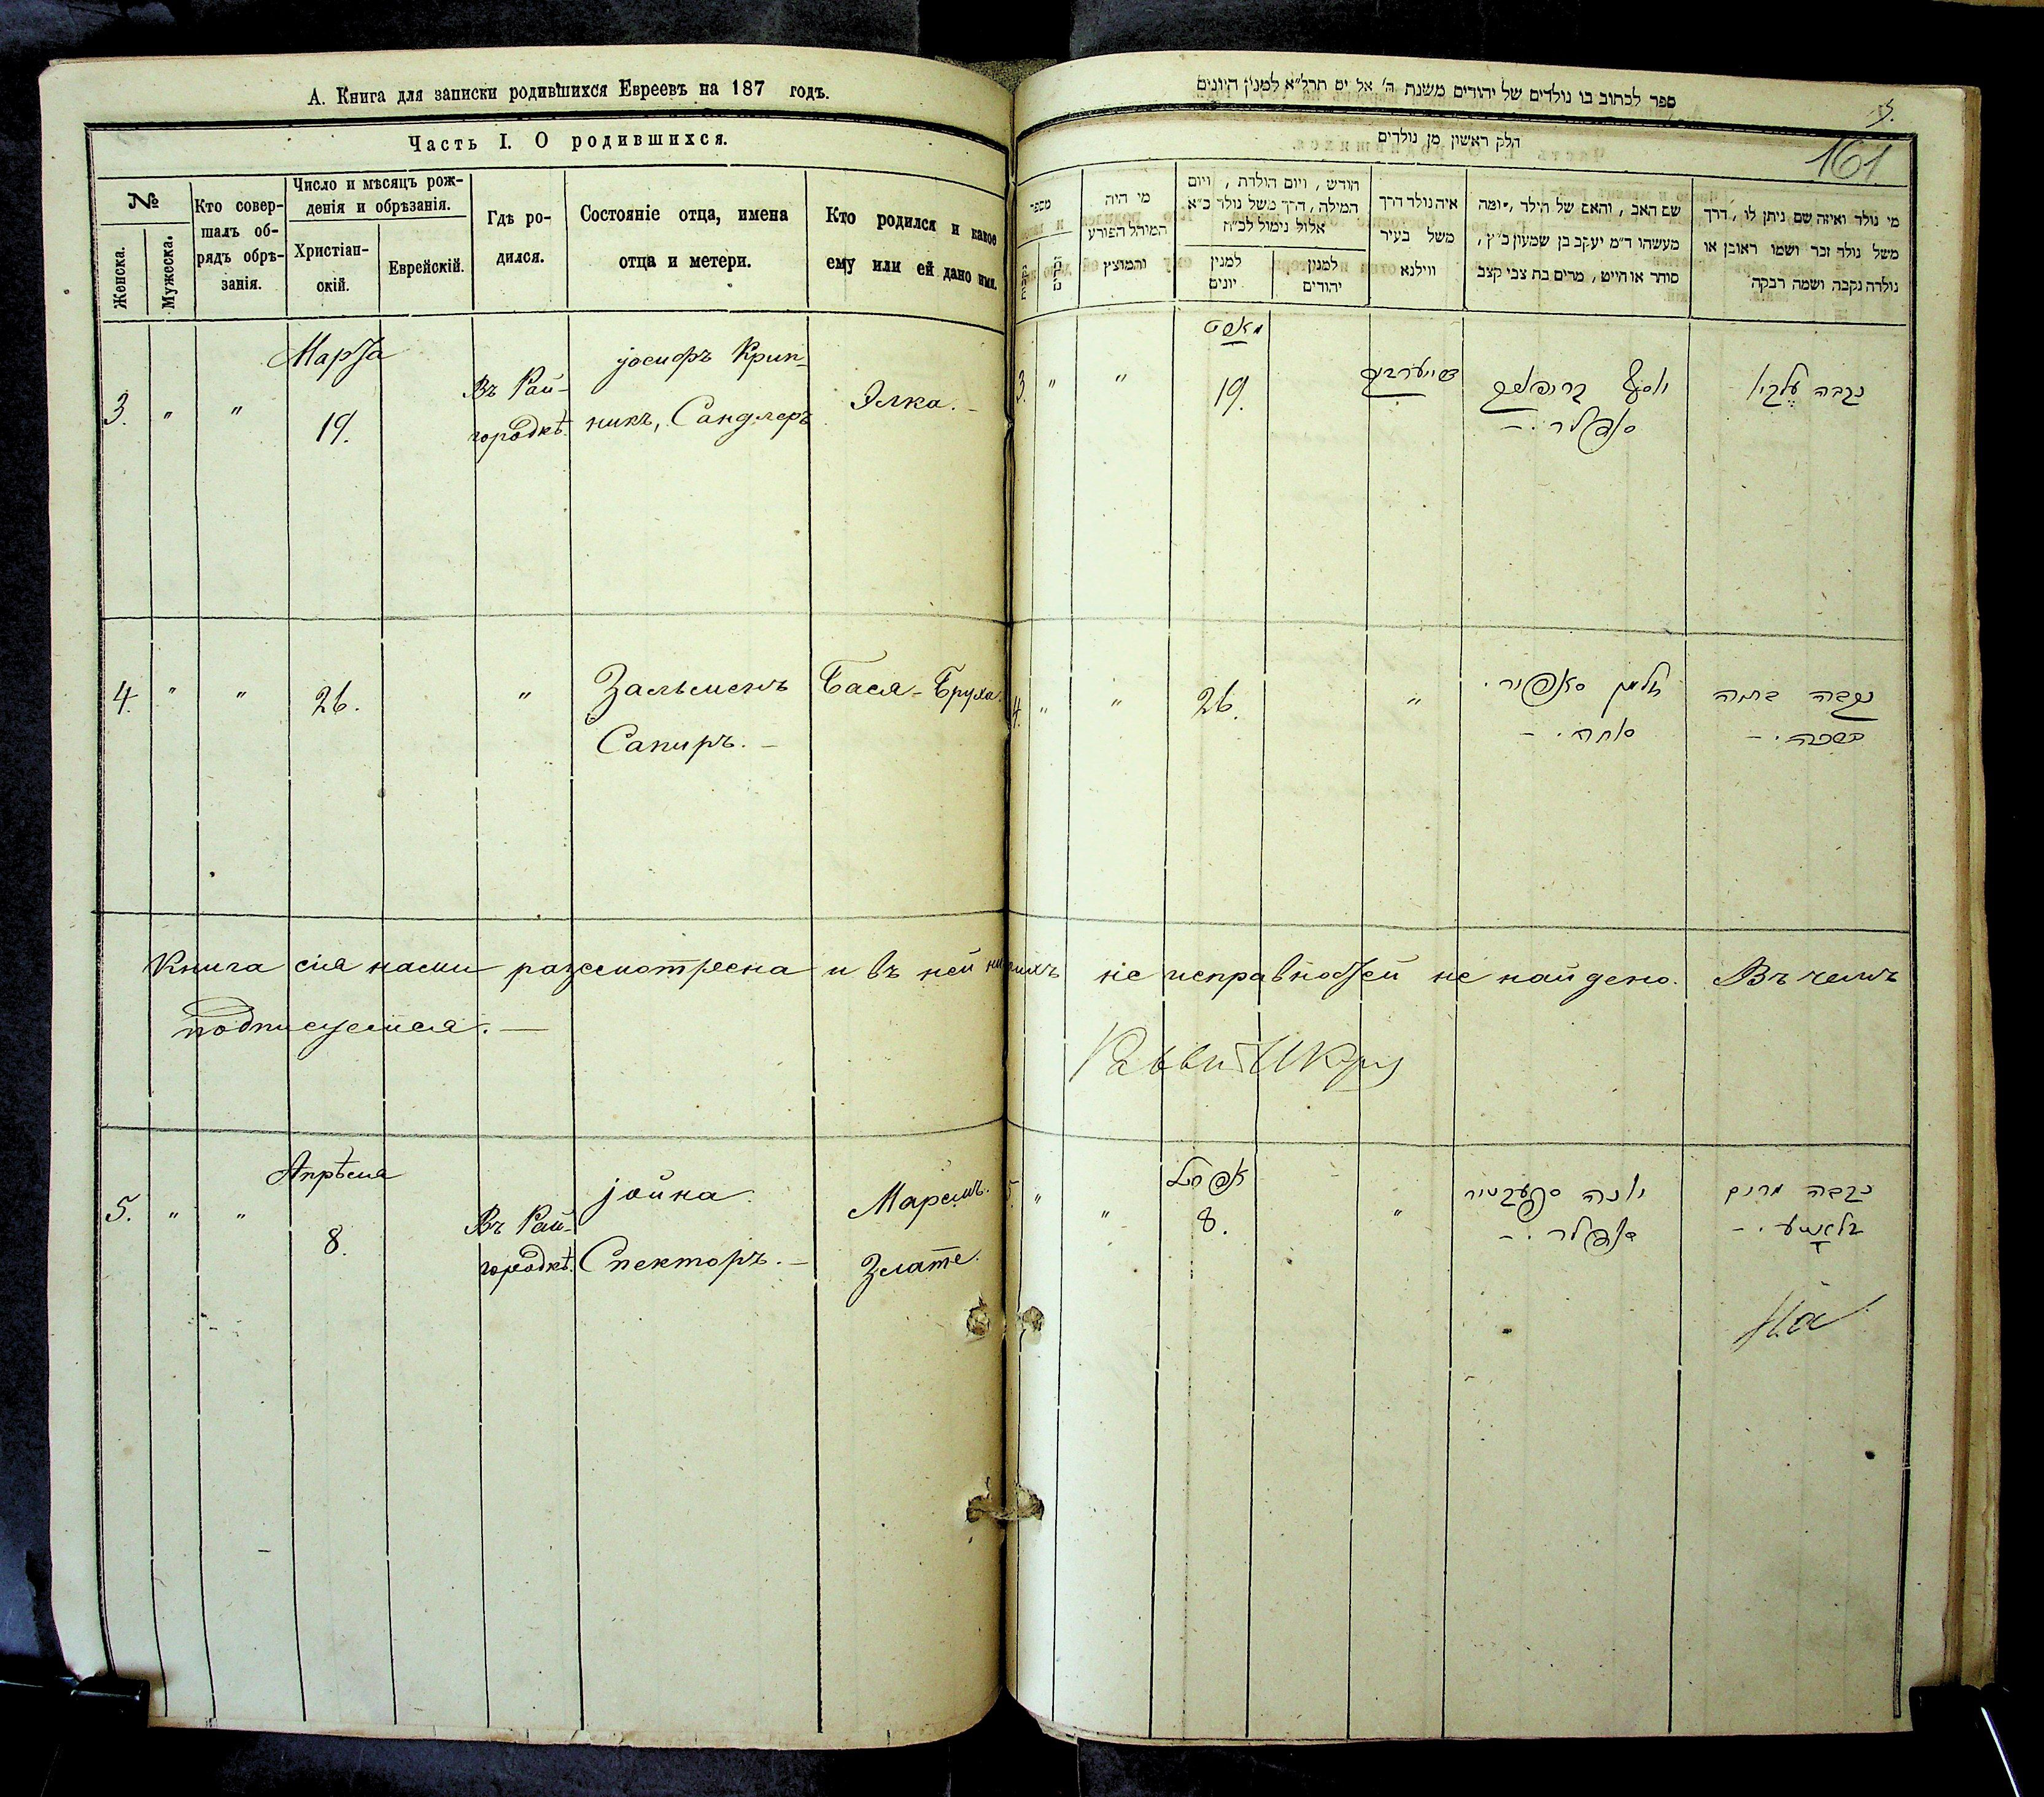 А. Книга для записки родившихся Евреевъ на 187 годъ.
Часть I. О родившихся.
№
Женска.
Мужеска.
Кто совер-
шалъ об-
рядъ обрѣ-
занія.
Число и мѣсяцъ рож-
денія и обрѣзанія.
Христіан-
скій.
Еврейскій.
Гдѣ ро-
дился.
Состояніе отца, имена
отца и метери.
Кто родился и какое
ему или ей дано имя.
Марта
3. " " 19.
Въ Рай-
городкѣ.
Іосифъ Крип-
никъ, Сандлеръ
Элка.
4. " " 26. "
Зальменъ
Сапиръ.
Бася-Бруха.
Книга сія нами разсмотрена и въ ней никакихъ не исправностей не найдено. Въ чемъ
подписуемся.
Апрѣля
5. " " 8.
Въ Рай-
городкѣ.
Іойна
Спекторъ.
Маремъ.
Злате.
ספר לכתוב בו נולדים של יהודים משנת ה' אל ים תרל״א למנין היונים
161
חלק ראשון מן נולדים
מספר
מי היה
המוהל הפורע
והמוצץ
חודש, ויום הולדת, ויום
המילה, דרך משל נולד כ״א
אלול נימול לכ״ח
למנין
יונים
למנין
יהודים
איה נולד דרך
משל בעיר
ווילנא
שם האב, והאם של הילד, ומה
מעשהו ד״מ יעקב בן שמעון כ״ץ,
סוחר או חייט, מרים בת צבי קצב
מי נולד ואיזה שם ניתן לו, דרך
משל נולד זכר ושמו ראובן או
נולדה נקבה ושמה רבקה
3. " " 19.
יוסף קריפניק
סאנדלר
נקבה עלקי
4. " " 26. "
זלמן סאפיר
נקבה
אפריל
5. " " 8. "
יונה ספעקטיר
סאנדלר
נקבה מרים
זלאטע